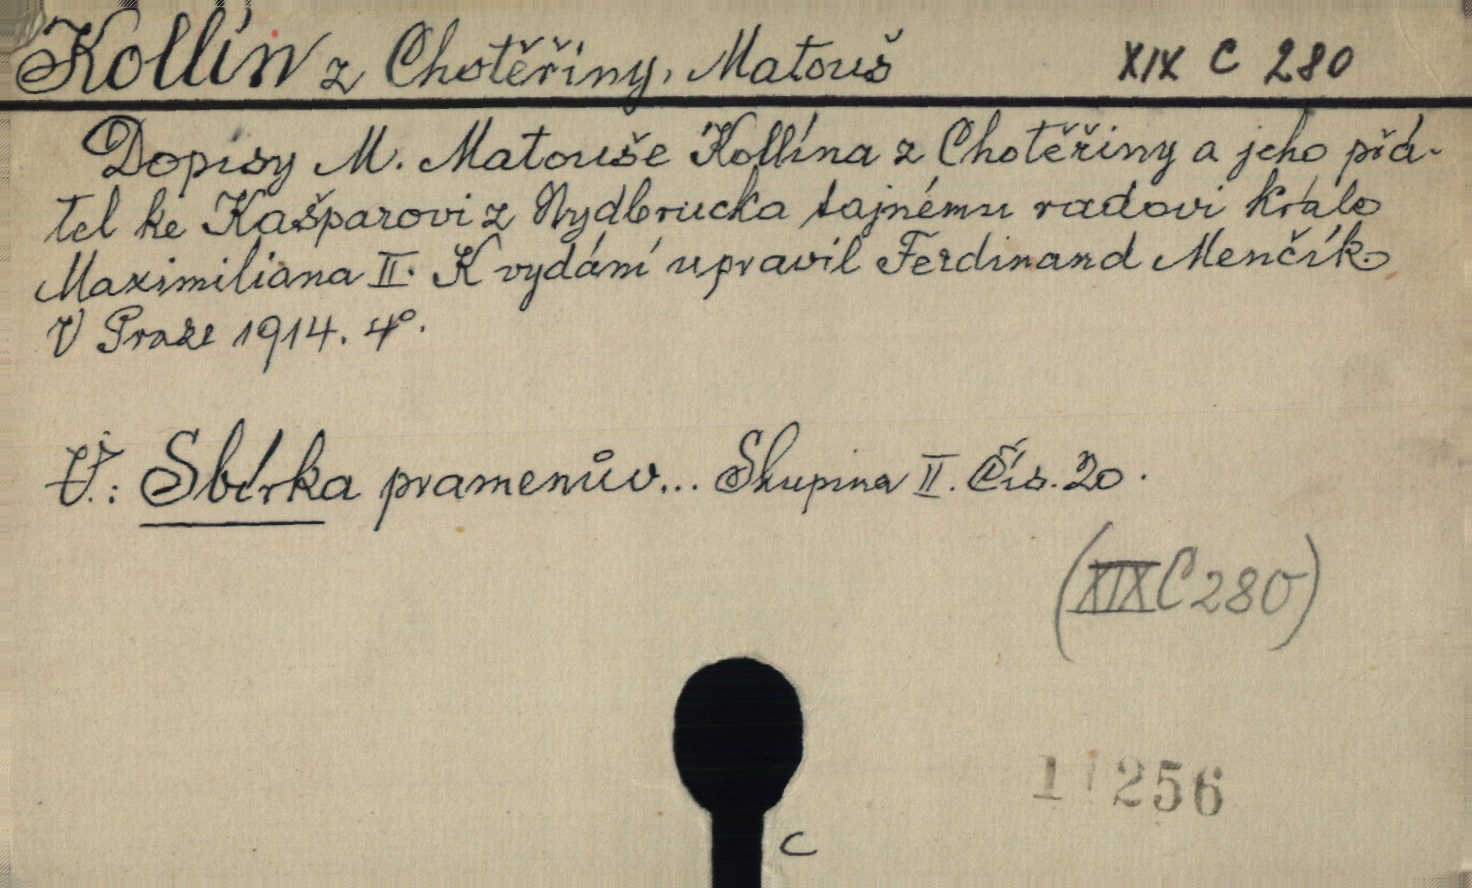 Kollín z Chotěřiny, Matouš XIX C 280
Dopisy M. Matouše Kollína z Chotěřiny a jeho přá-
tel ke Kašparovi z Nydbrucka tajnému radovi krále
Maximiliana II. K vydání upravil Ferdinand Menčík.
V Praze 1914. 4°.
V.: Sbírka pramenův... Skupina II. Čís. 20.
(XIX C 280)
1 256
C